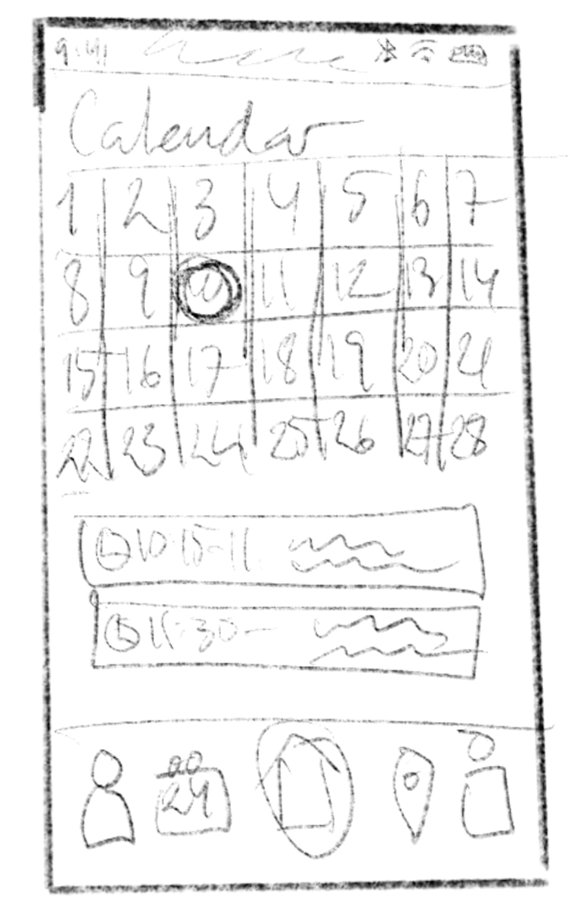 9:41
Calendar
1 2 3 4 5 6 7
8 9 10 11 12 13 14
15 16 17 18 19 20 21
22 23 24 25 26 27 28
10:15-11
11:30-
24